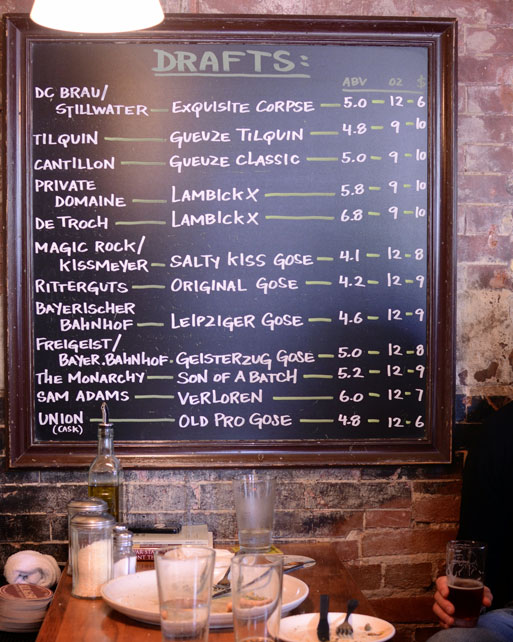 DRAFTS:
ABV OZ $
DC BRAU/
STILLWATER - EXQUISITE CORPSE - 5.0 - 12 - 6
TILQUIN - GUEUZE TILQUIN - 4.8 - 9 - 10
CANTILLON - GUEUZE CLASSIC - 5.0 - 9 - 10
PRIVATE
DOMAINE - LAMBICKX - 5.8 - 9 - 10
DE TROCH - LAMBICKX - 6.8 - 9 - 10
MAGIC ROCK/
KISSMEYER - SALTY KISS GOSE - 4.1 - 12 - 8
RITTERGUTS - ORIGINAL GOSE - 4.2 - 12 - 9
BAYERISCHER
BAHNHOF - LEIPZIGER GOSE - 4.6 - 12 - 9
FREIGEIST/
BAYER. BAHNHOF - GEISTERZUG GOSE - 5.0 - 12 - 8
THE MONARCHY - SON OF A BATCH - 5.2 - 12 - 9
SAM ADAMS - VERLOREN - 6.0 - 12 - 7
UNION - OLD PRO GOSE - 4.8 - 12 - 6
(CASK)